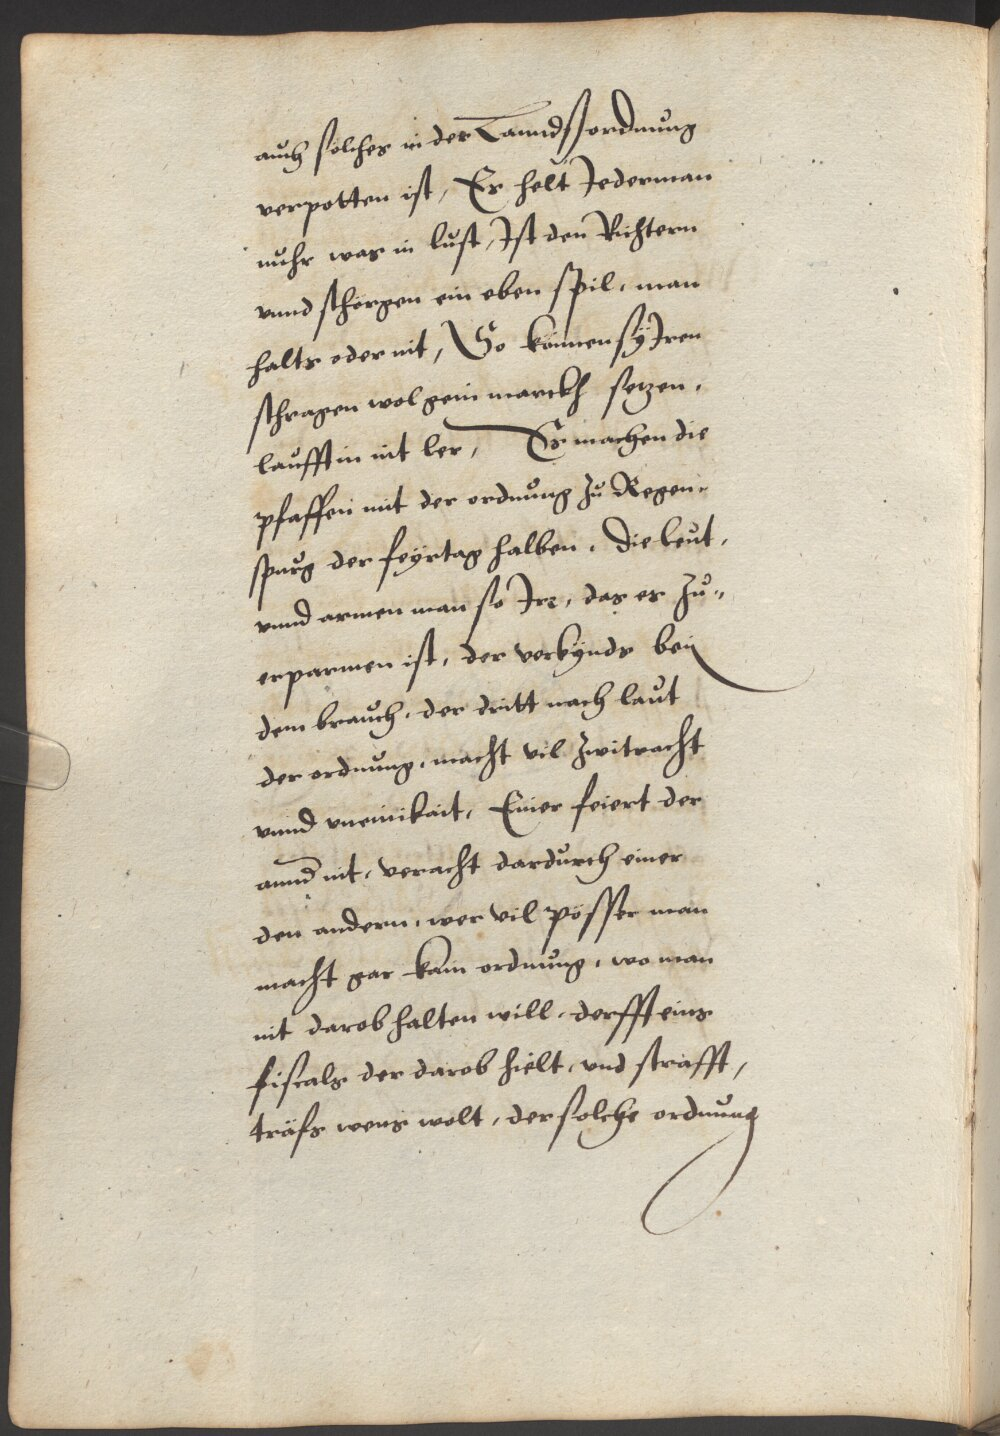 auch solches in der Lanndsordnung
verpotten ist, Es helt Jederman
nuhr was in lust, Ist den Richtern
vnnd schergen ein eben spil, man
halts oder nit, So können sÿ Iren
schragen wol gein marckh setzen,
laufft in nit ler, Es machen die
pfaffen mit der ordnung zu Regen-
spurg der feÿrtag halben, die leut,
vnnd armen man so Irr, das es zu-
erparmen ist, der verkÿnds beÿ
dem brauch, der dritt nach laut
der ordnung, macht vil zwitracht
vnnd vneinikait, Einer feiert der
annd nit, veracht dardurch einer
den andern, wer vil pösser man
macht gar kain ordnung, wo man
nit darob halten will, derfft eins
fiscals der darob hielt, vnd strafft,
träfs wens wolt, der solche ordnung